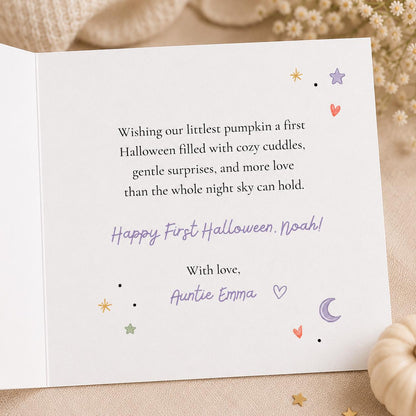 Wishing our littlest pumpkin a first
Halloween filled with cozy cuddles,
gentle surprises, and more love
than the whole night sky can hold.
Happy First Halloween, Noah!
With love,
Auntie Emma